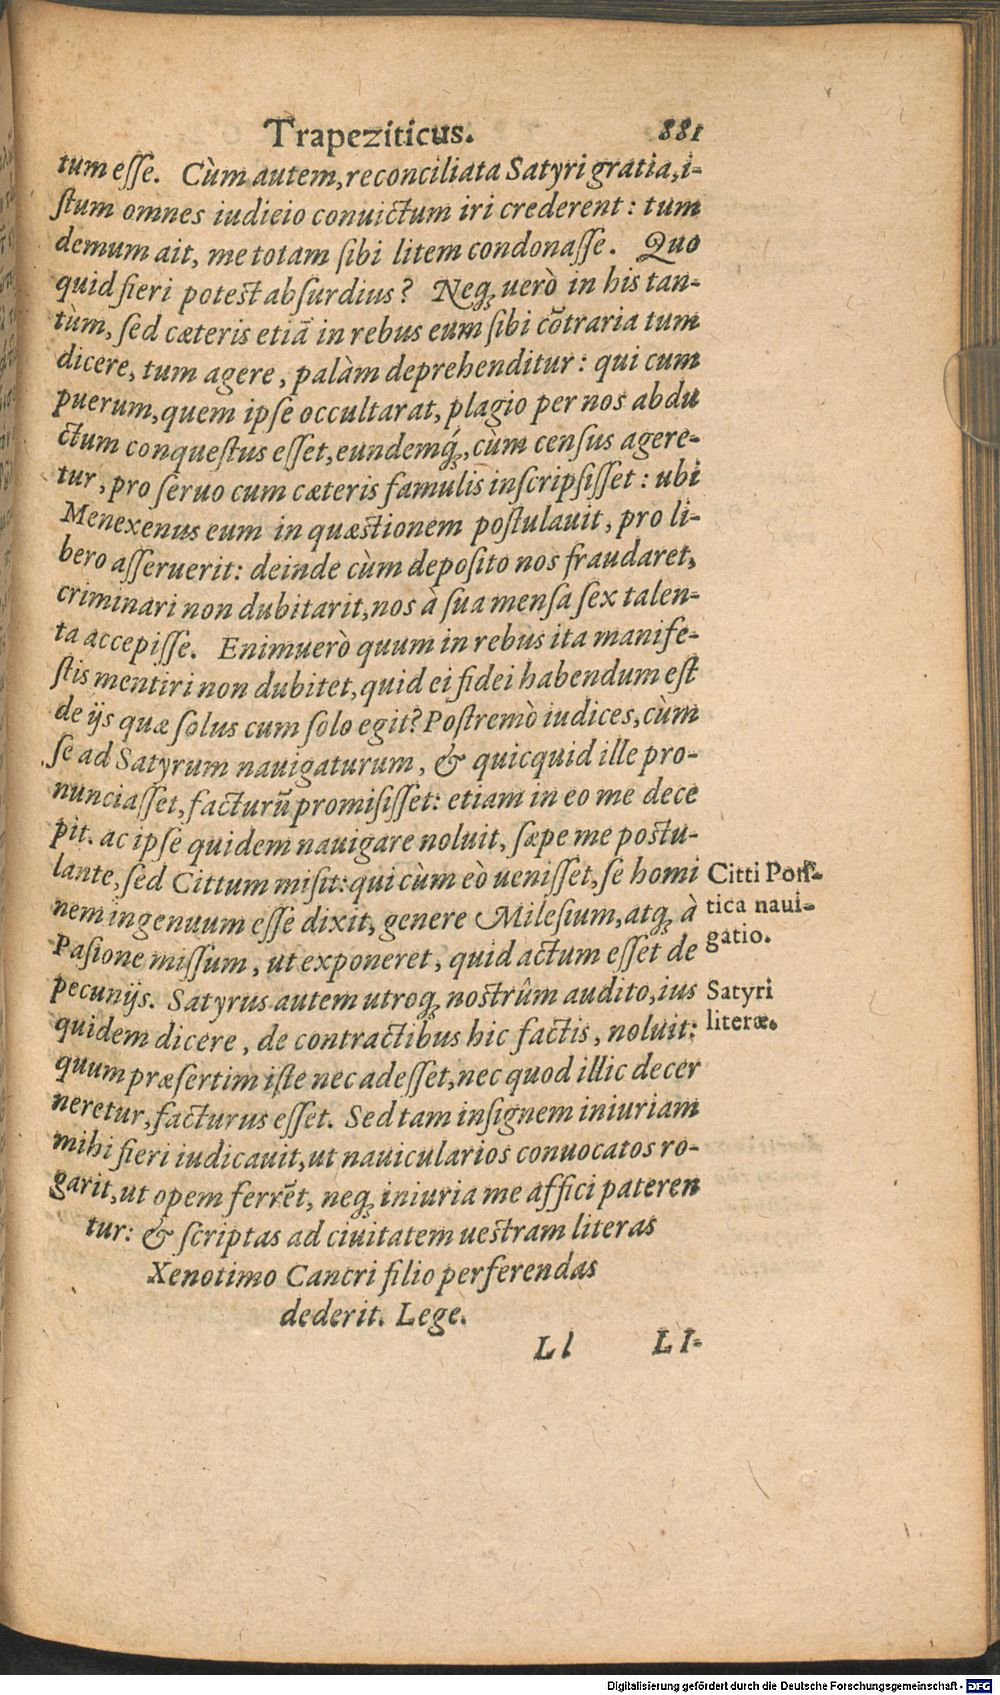 Trapeziticus. 881
tum eſſe. Cùm autem, reconciliata Satyri gratia, i-
ſtum omnes iudicio conuictum iri crederent: tum
demum ait, me totam ſibi litem condonaſſe. Quo
quid fieri poteſt abſurdius? Neqꝫ uerò in his tan-
tùm, ſed cæteris etiã in rebus eum ſibi cõtraria tum
dicere, tum agere, palàm deprehenditur: qui cum
puerum, quem ipſe occultarat, plagio per nos abdu
ctum conqueſtus eſſet, eundemq́ꝫ, cùm cenſus agere-
tur, pro ſeruo cum cæteris famulis inſcripſiſſet: ubi
Menexenus eum in quæſtionem poſtulauit, pro li-
bero aſſeruerit: deinde cùm depoſito nos fraudaret,
criminari non dubitarit, nos à ſua menſa ſex talen-
ta accepiſſe. Enimuerò quum in rebus ita manife-
ſtis mentiri non dubitet, quid ei fidei habendum eſt
de ijs quæ ſolus cum ſolo egit? Poſtremò iudices, cùm
ſe ad Satyrum nauigaturum, & quicquid ille pro-
nunciaſſet, facturũ promiſiſſet: etiam in eo me dece
pit. ac ipſe quidem nauigare noluit, ſæpe me poſtu-
lante, ſed Cittum miſit: qui cùm eò ueniſſet, ſe homi
nem ingenuum eſſe dixit, genere Mileſium, atqꝫ à
Paſione miſſum, ut exponeret, quid actum eſſet de
pecunijs. Satyrus autem utroqꝫ noſtrûm audito, ius
quidem dicere, de contractibus hic factis, noluit:
quum præſertim iſte nec adeſſet, nec quod illic decer
neretur, facturus eſſet. Sed tam inſignem iniuriam
mihi fieri iudicauit, ut nauicularios conuocatos ro-
garit, ut opem ferrẽt, neqꝫ iniuria me affici pateren
tur: & ſcriptas ad ciuitatem ueſtram literas
Xenotimo Cancri filio perferendas
dederit. Lege.
Ll LI-
Citti Pon-
tica naui-
gatio.
Satyri
literæ.
Digitalisierung gefördert durch die Deutsche Forschungsgemeinschaft - DFG